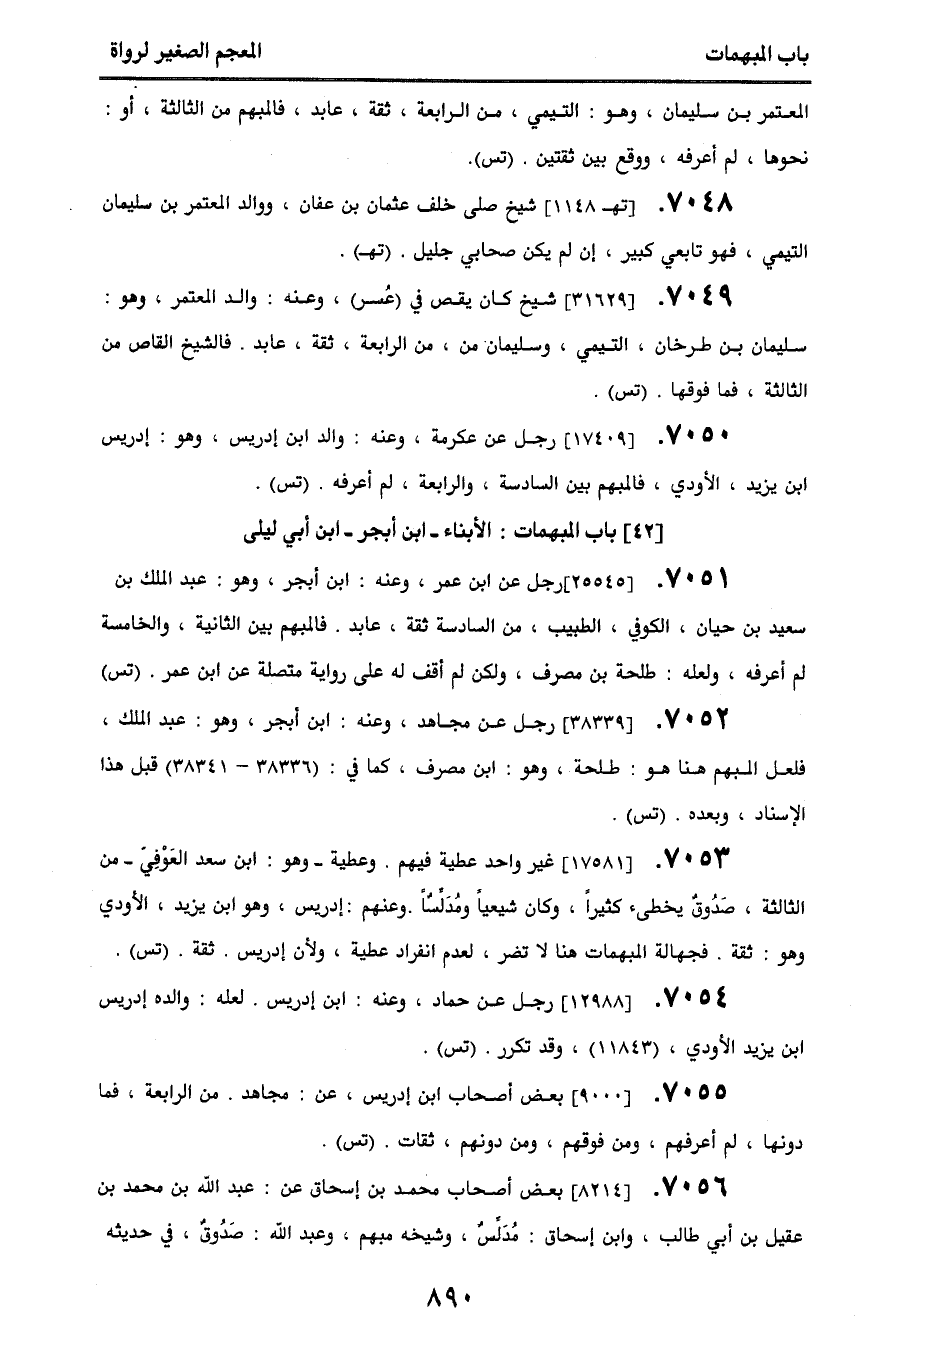 باب المبهمات
المعجم الصغير لرواة
المعتمر بن سليمان ، وهو : التيمي ، من الرابعة ، ثقة ، عابد ، فالمبهم من الثالثة ، أو :
نحوها ، لم أعرفه ، ووقع بين ثقتين . (تس).
٧٠٤٨. [تهـ ١١٤٨] شيخ صلى خلف عثمان بن عفان ، ووالد المعتمر بن سليمان
التيمي ، فهو تابعي كبير ، إن لم يكن صحابي جليل . (تهـ) .
٧٠٤٩. [٣١٦٢٩] شيخ كان يقص في (عُسر) ، وعنه : والد المعتمر ، وهو :
سليمان بن طرخان ، التيمي ، وسليمان من ، من الرابعة ، ثقة ، عابد . فالشيخ القاص من
الثالثة ، فما فوقها . (تس) .
٧٠٥٠. [١٧٤٠٩] رجل عن عكرمة ، وعنه : والد ابن إدريس ، وهو : إدريس
ابن يزيد ، الأودي ، فالمبهم بين السادسة ، والرابعة ، لم أعرفه . (تس) .
[٤٢] باب المبهمات : الأبناء ـ ابن أبجر ـ ابن أبي ليلى
٧٠٥١. [٢٥٥٤٥]رجل عن ابن عمر ، وعنه : ابن أبجر ، وهو : عبد الملك بن
سعيد بن حيان ، الكوفي ، الطبيب ، من السادسة ثقة ، عابد . فالمبهم بين الثانية ، والخامسة
لم أعرفه ، ولعله : طلحة بن مصرف ، ولكن لم أقف له على رواية متصلة عن ابن عمر . (تس)
٧٠٥٢. [٣٨٣٣٩] رجل عن مجاهد ، وعنه : ابن أبجر ، وهو : عبد الملك ،
فلعل المبهم هنا هو : طلحة ، وهو : ابن مصرف ، كما في : (٣٨٣٣٦ – ٣٨٣٤١) قبل هذا
الإسناد ، وبعده . (تس) .
٧٠٥٣. [١٧٥٨١] غير واحد عطية فيهم . وعطية ـ وهو : ابن سعد العَوْفِيّ ـ من
الثالثة ، صَدُوقٌ يخطىء كثيراً ، وكان شيعياً ومُدَلِّسًاً .وعنهم :إدريس ، وهو ابن يزيد ، الأودي
وهو : ثقة . فجهالة المبهمات هنا لا تضر ، لعدم انفراد عطية ، ولأن إدريس . ثقة . (تس) .
٧٠٥٤. [١٢٩٨٨] رجل عن حماد ، وعنه : ابن إدريس . لعله : والده إدريس
ابن يزيد الأودي ، (١١٨٤٣) ، وقد تكرر . (تس) .
٧٠٥٥. [٩٠٠٠] بعض أصحاب ابن إدريس ، عن : مجاهد . من الرابعة ، فما
دونها ، لم أعرفهم ، ومن فوقهم ، ومن دونهم ، ثقات . (تس) .
٧٠٥٦. [٨٢١٤] بعض أصحاب محمد بن إسحاق عن : عبد الله بن محمد بن
عقيل بن أبي طالب ، وابن إسحاق : مُدَلِّسٌ ، وشيخه مبهم ، وعبد الله : صَدُوقٌ ، في حديثه
٨٩٠